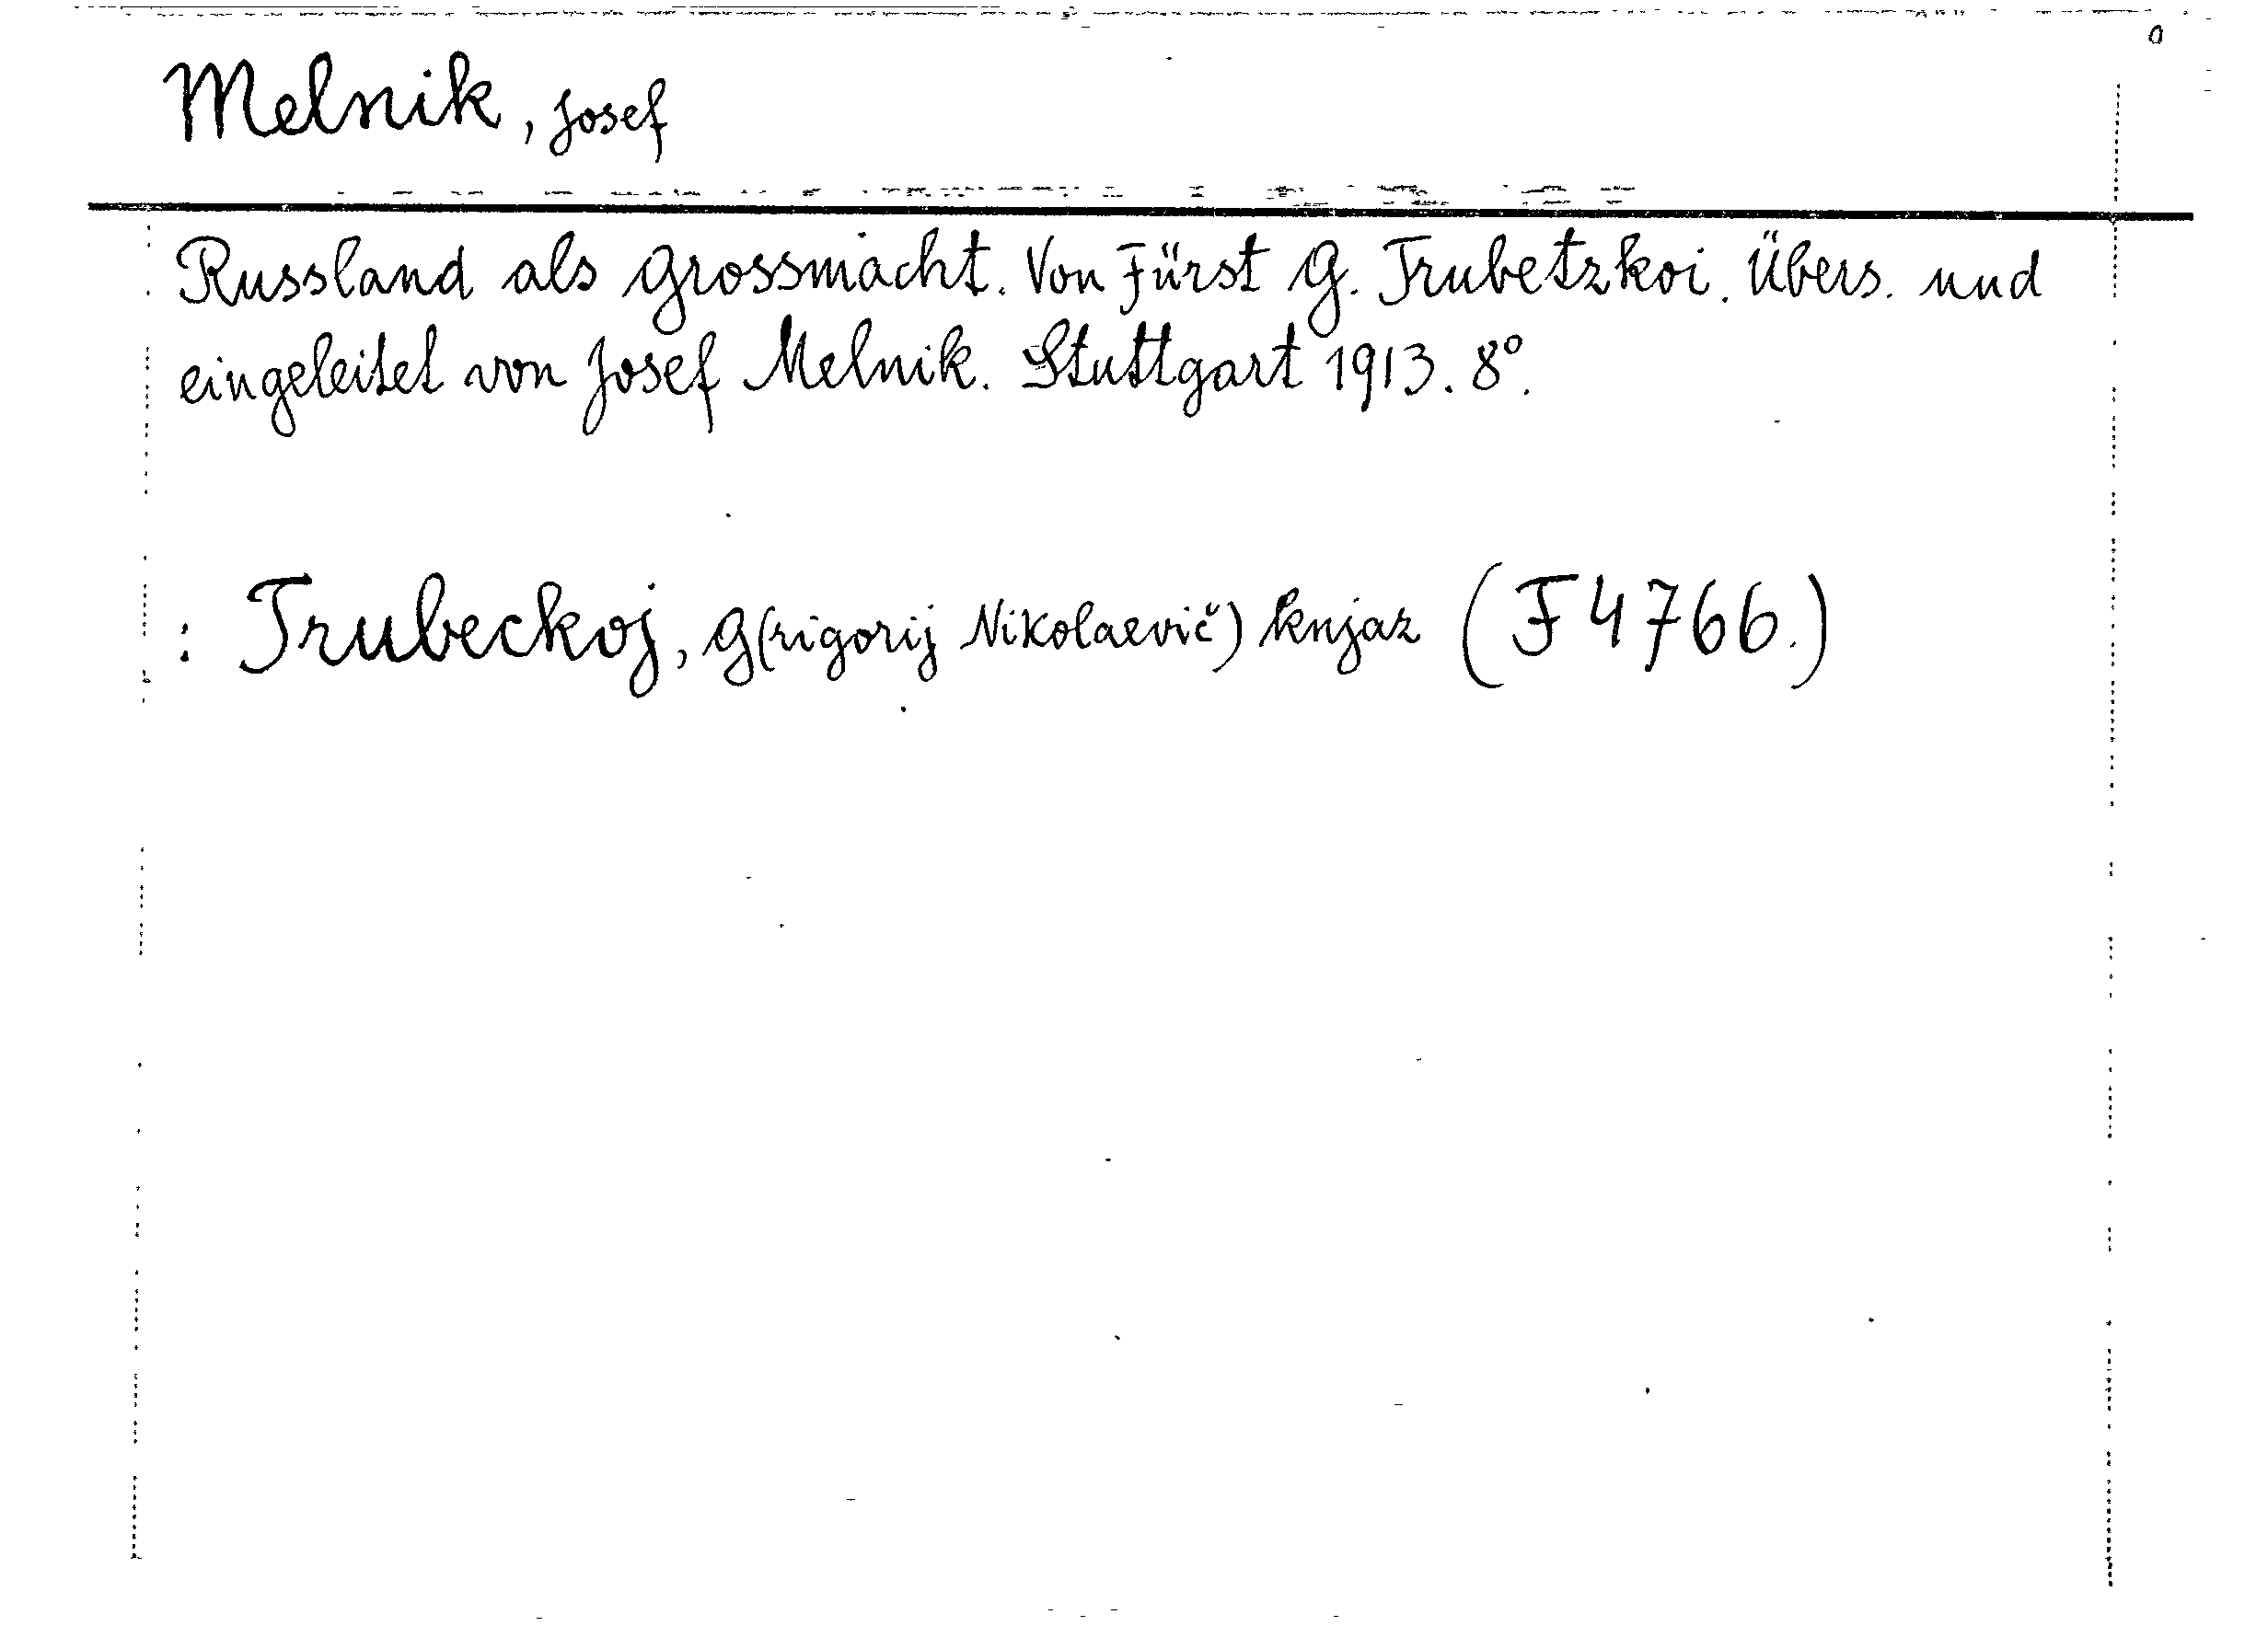 Melnik, Josef
Russland als Grossmacht. Von Fürst G. Trubetzkoi. Übers. und
eingeleitet von Josef Melnik. Stuttgart 1913. 8°.
: Trubeckoj, G(rigorij Nikolaevič) knjaz (F 4766.)